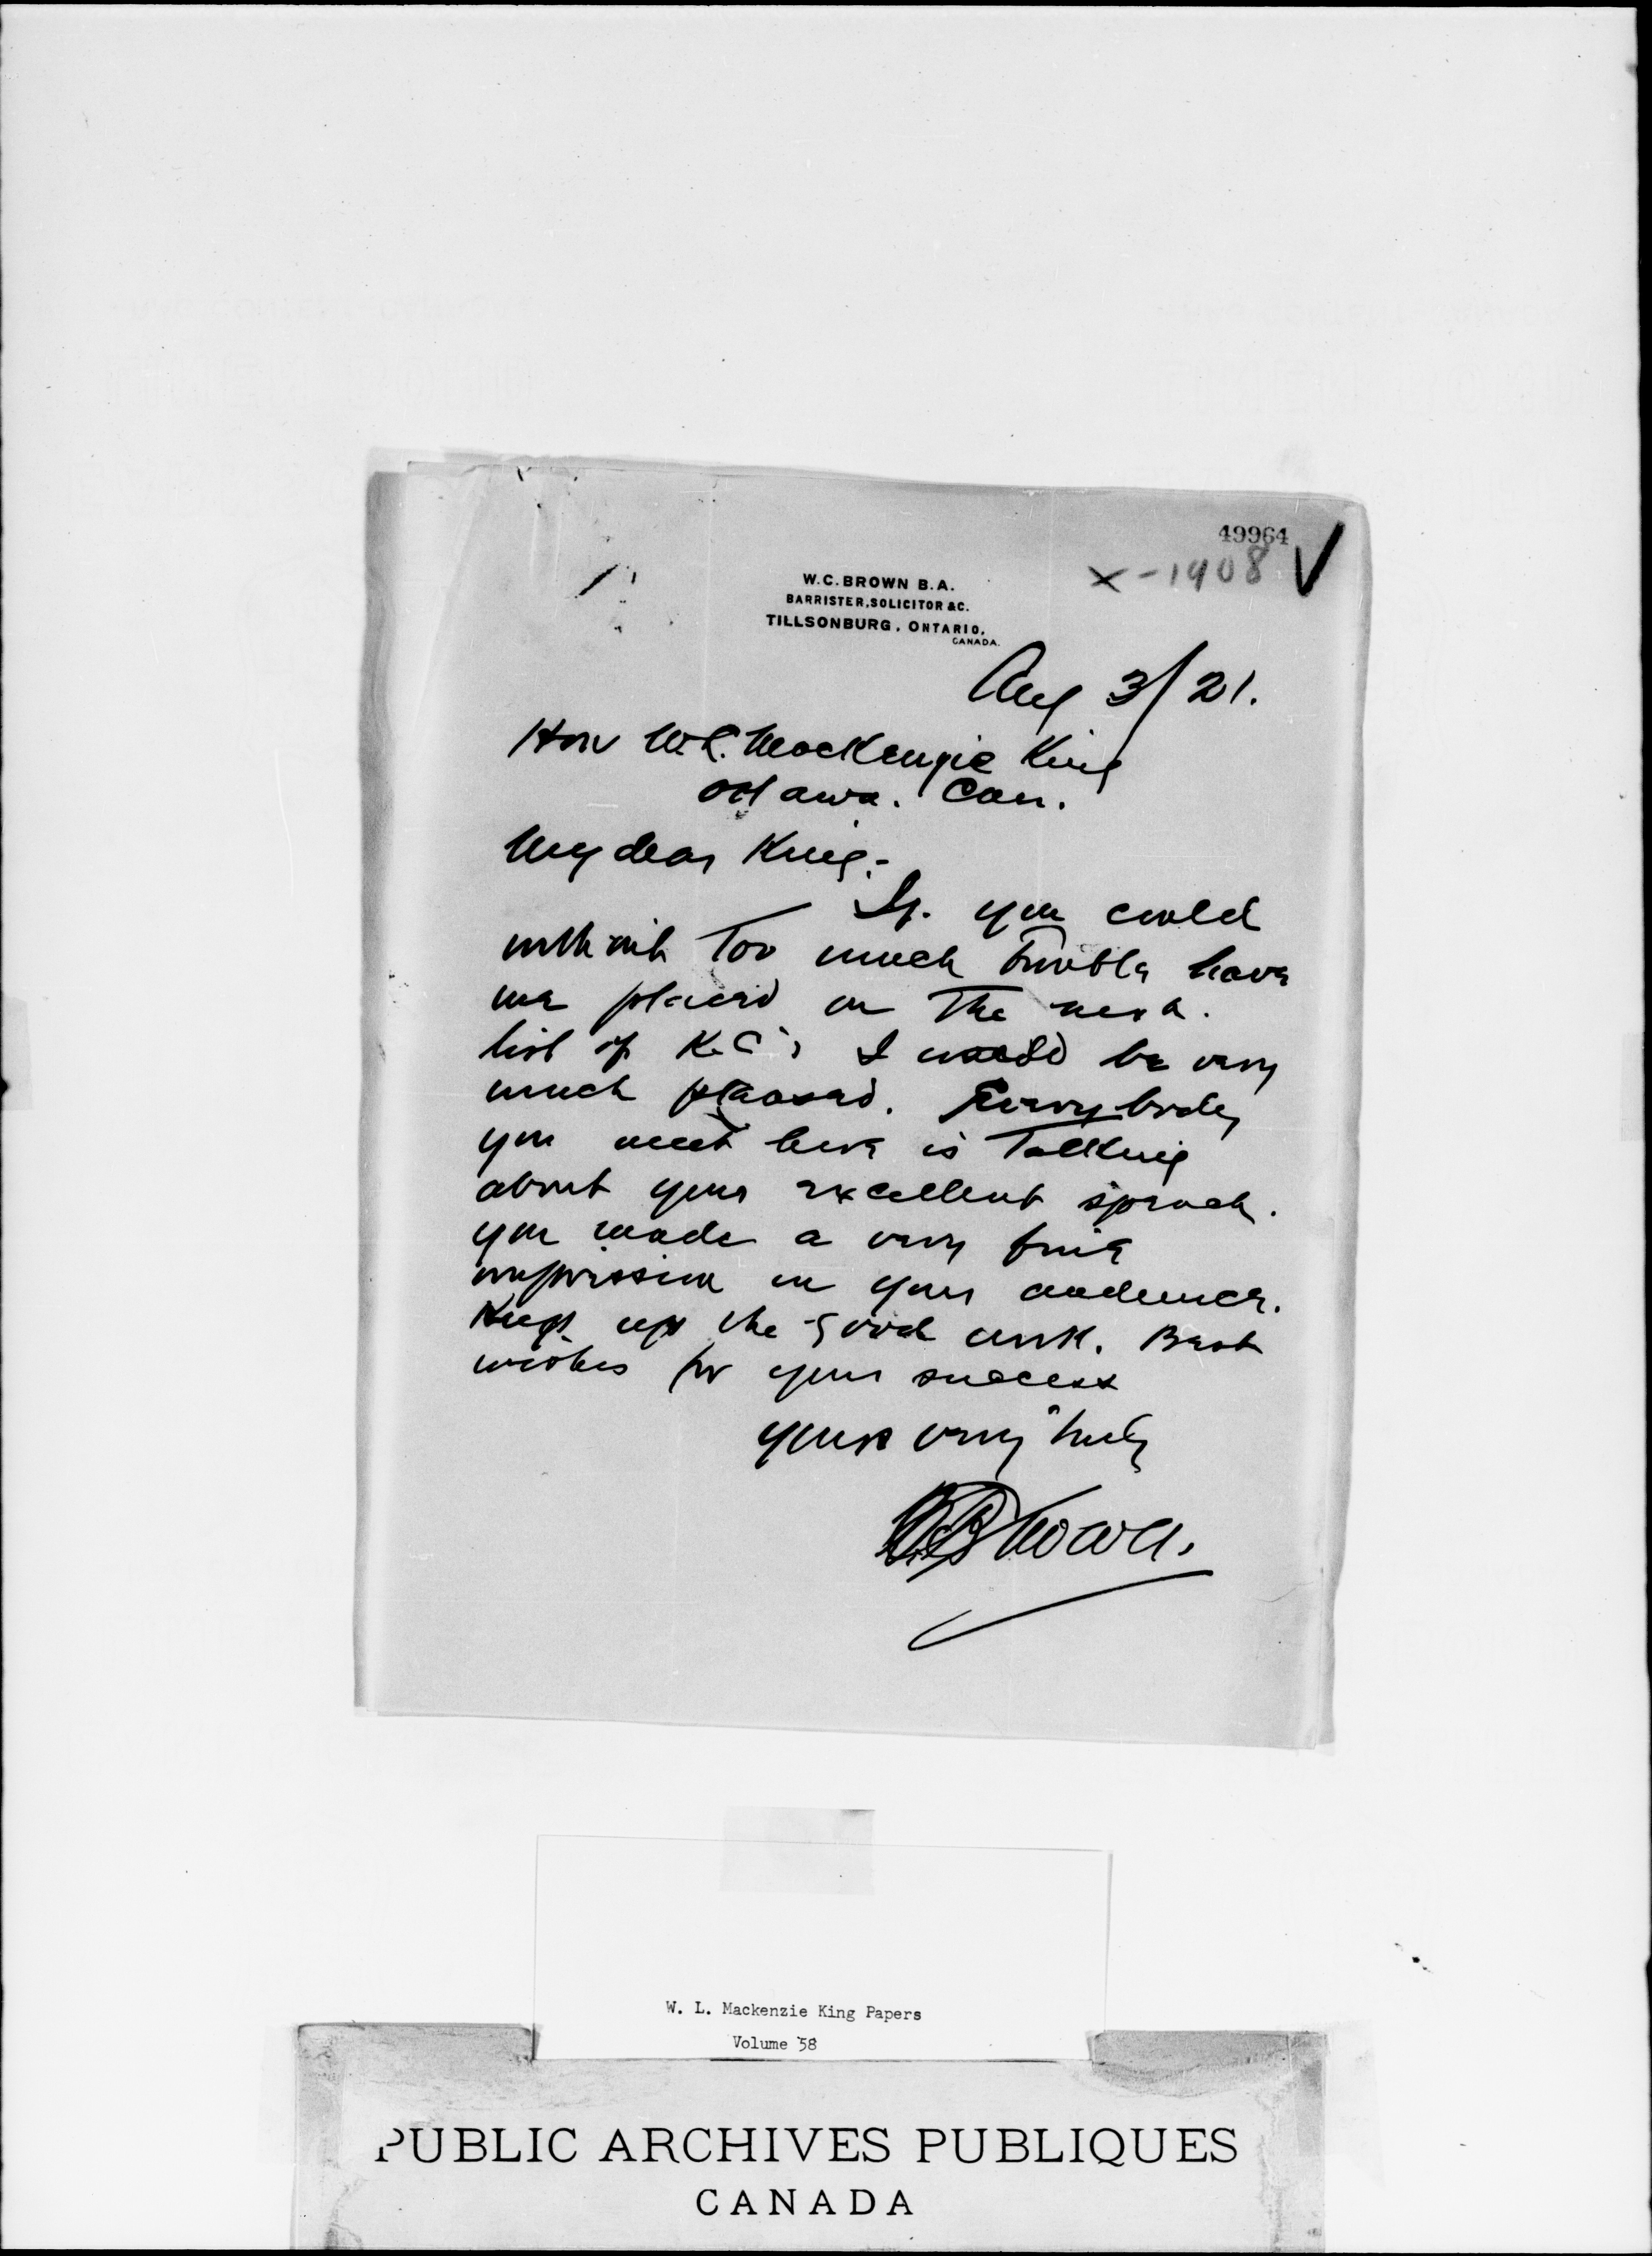 49964
x-1908 ✓
W.C. BROWN B.A.
BARRISTER, SOLICITOR &C.
TILLSONBURG, ONTARIO,
CANADA.
Aug 3/21.
Hon W.L. MacKenzie King
Ottawa. Can.
My dear King:-
If you could
without too much trouble have
me placed on the next
list of K.C's I would be very
much pleased. Everybody
you meet here is talking
about your excellent speech.
you made a very fine
impression on your audience.
Keep up the good work. Best
wishes for your success
yours very truly
W.C. Brown.
W. L. Mackenzie King Papers
Volume 58
PUBLIC ARCHIVES PUBLIQUES
CANADA